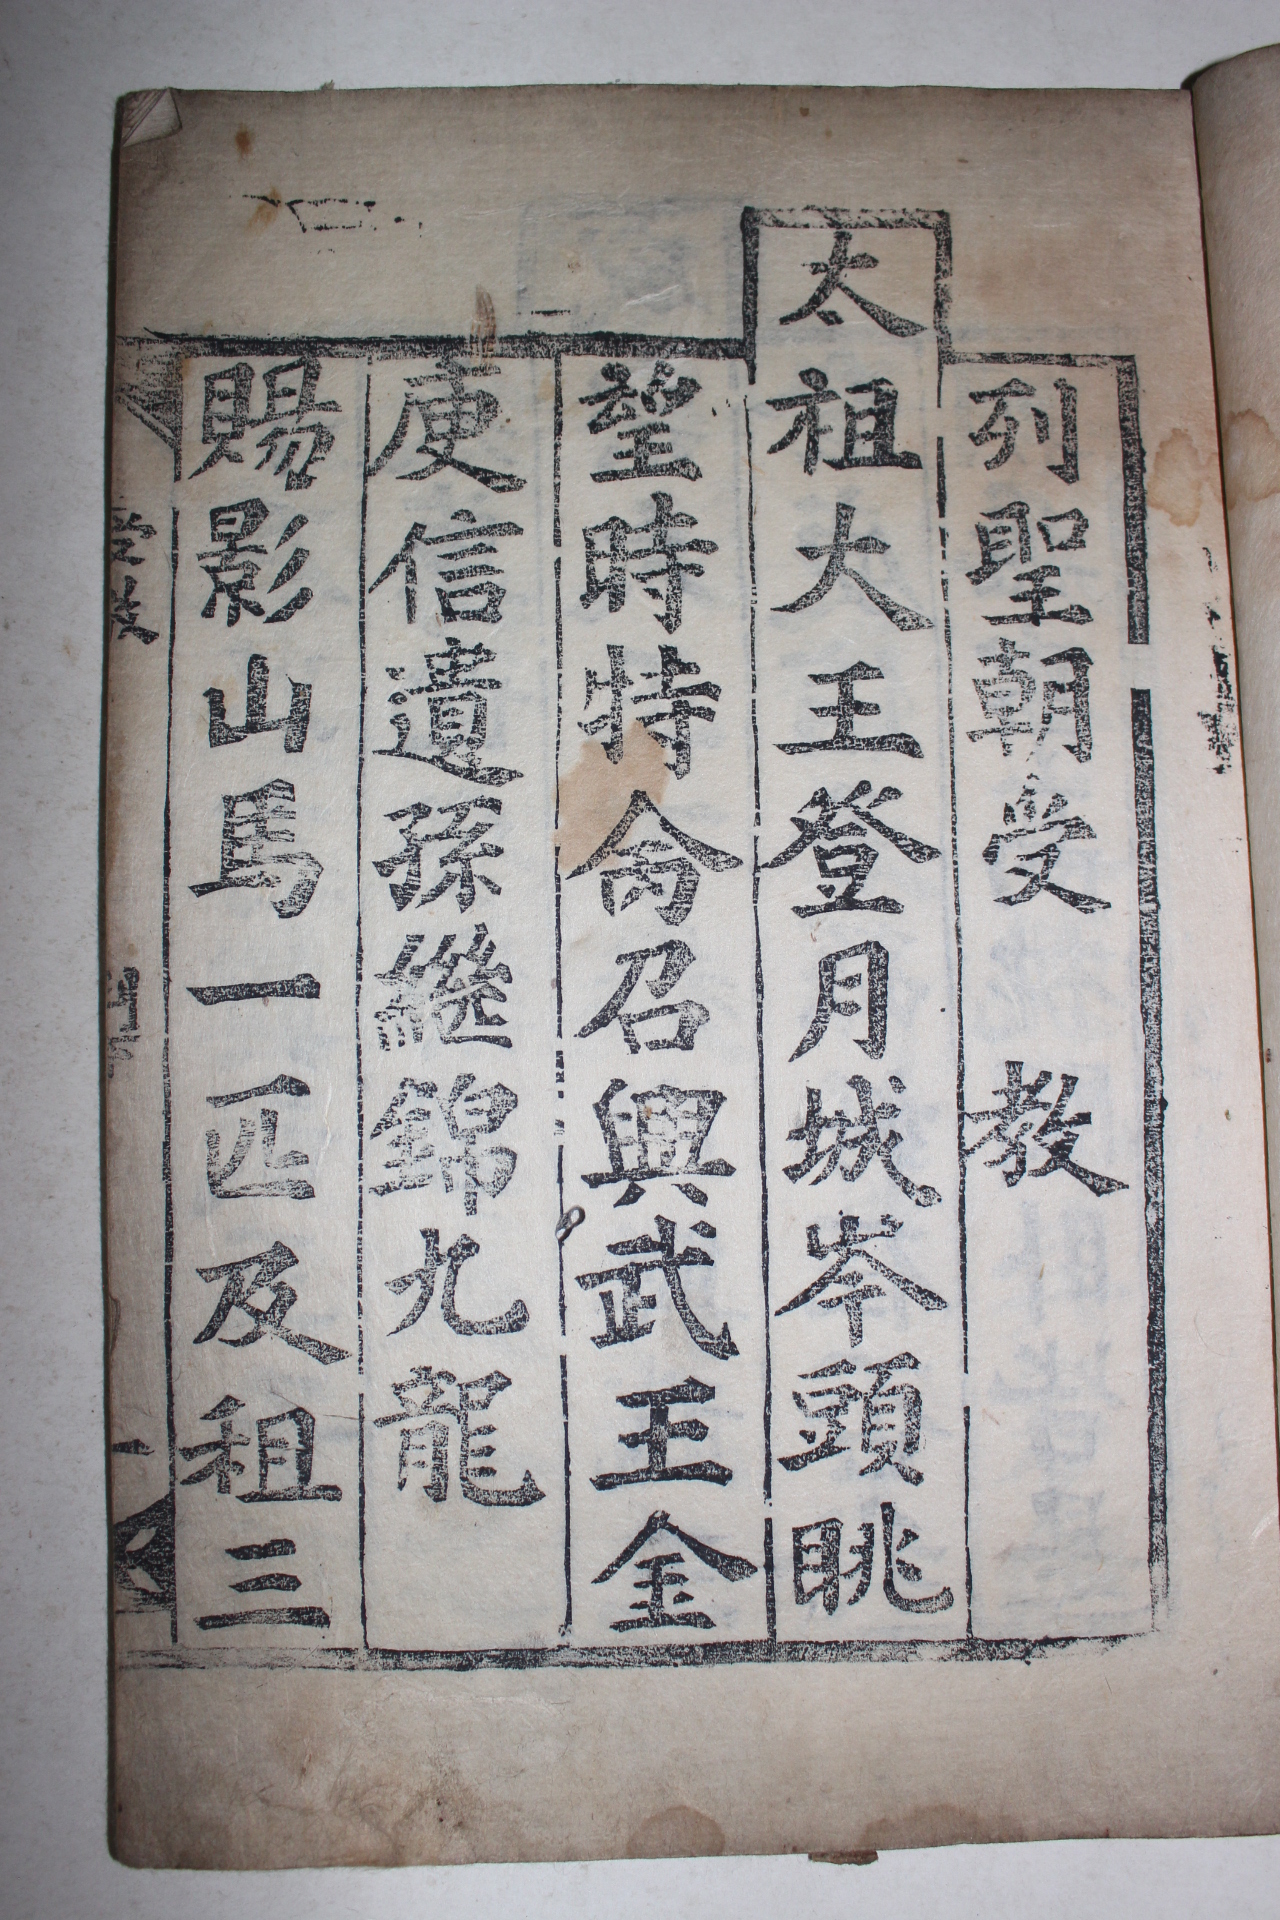 列聖朝受　教
太祖大王登月城岑頭眺
望時特命召興武王金
庾信遺孫繼錦九龍
賜影山馬一匹及租三